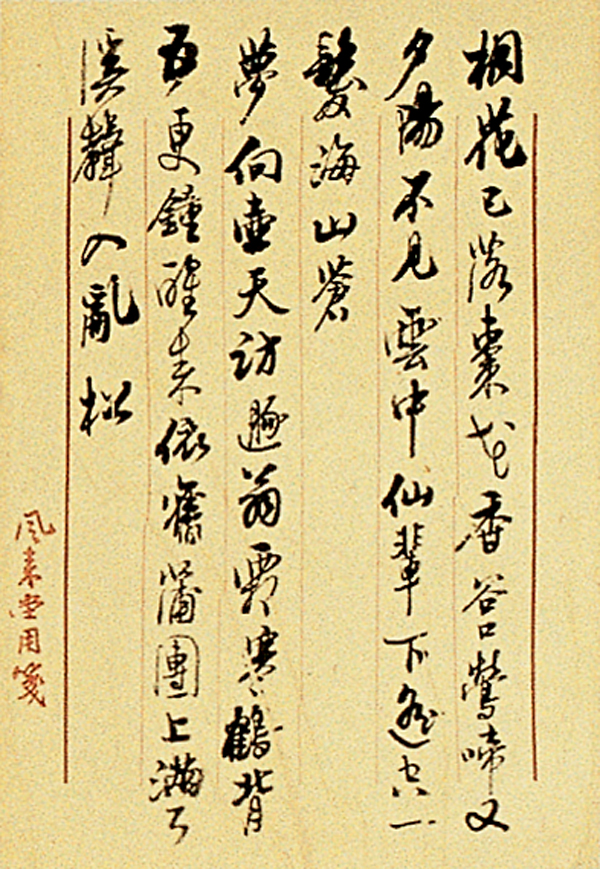 桐花已落棗花香谷口鶯啼又
夕陽不見雲中仙輩下遙空一
髮海山蒼
夢向壺天訪遯翁寒鶴背
五更鐘醒來依舊蒲團上滿耳
溪聲入亂松
風來堂用箋